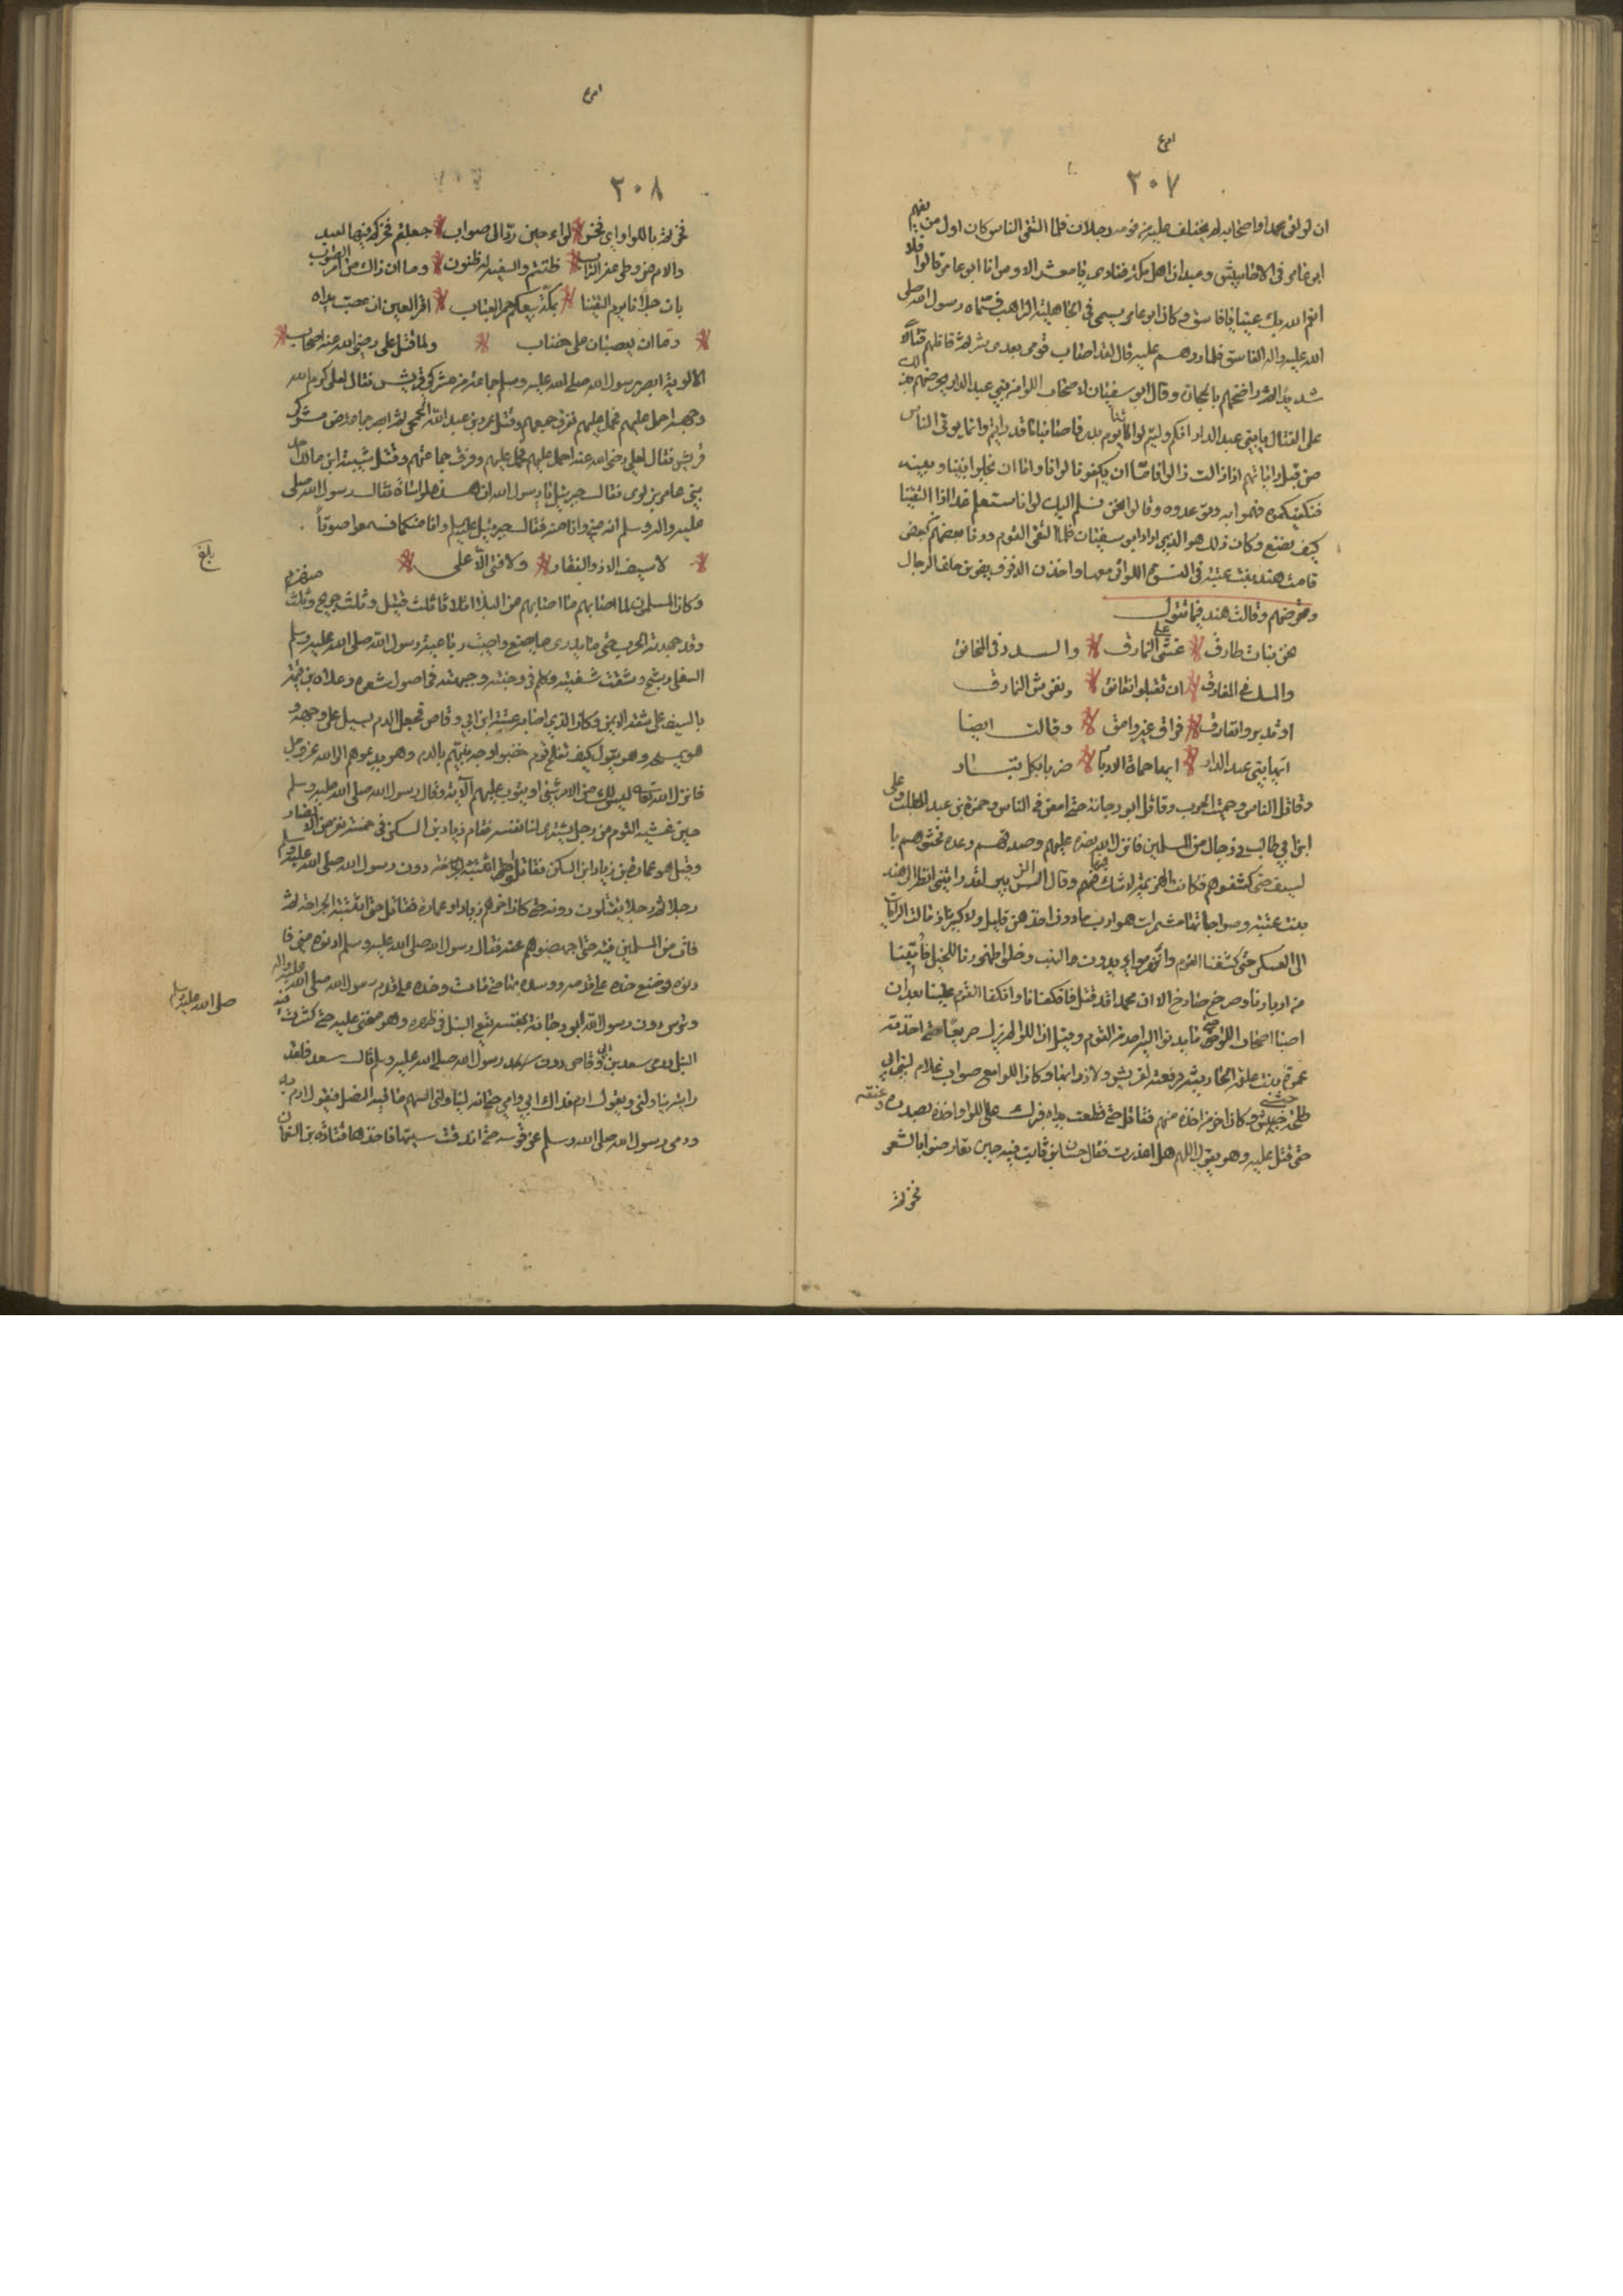 ٢٠٧
ان لو لقى محمدا واصحابه لم يختلف عليه من قومه رجلان فلما التقى الناس كان اول من لقيهم
ابو عامر في الاحابيش وعبدان اهل مكة فنادى يا معشر الاوس انا ابو عامر قالوا فلا
انعم الله بك عينا يا فاسق وكان ابو عامر يسمى في الجاهلية الراهب فسماه رسول الله صلى
الله عليه واله الفاسق فلما ردهم عليه قال لقد اصاب قومي بعدي شر ثم قاتلهم قتالاً
شديدا ثم راضخهم بالحجارة وقال ابو سفيان لاصحاب اللوا من بني عبد الدار يحرضهم بذلك
على القتال يا بني عبد الدار انكم وليتم لوانا يوم بدر فاصابنا ما قد رايتم وانما يوتى الناس
من قبل راياتهم اذا زالت زالوا فاما ان تكفونا لوانا واما ان تخلوا بيننا وبينه
فنكفيكموه فهموا به وتوعدوه وقالوا نحن نسلم اليك لوانا ستعلم غدا اذا التقينا
كيف نصنع وكان ذلك هو الذي اراد ابو سفيان فلما التقى القوم ودنا بعضهم من بعض
قامت هند بنت عتبة في النسوة اللواتي معها واخذن الدفوف يضربن خلف الرجال
وتحرضهم وقالت هند فيما تقول
نحن بنات طارق نمشي على النمارق والدر في المخانق
والمسك في المفارق ان تقبلوا نعانق ونفرش النمارق
او تدبروا نفارق فراق غير وامق وقالت ايضا
ايها بني عبد الدار ايها حماة الادبار ضربا بكل بتار
وقاتل الناس وحميت الحرب وقاتل ابو دجانة حتى امعن في الناس وحمزة بن عبد المطلب وعلى
ابن ابي طالب في رجال من المسلمين فانزل الله نصره عليهم وصدقهم وعده فحشوهم با
لسيوف حتى كشفوهم فكانت الهزيمة لا شك فيها وقال الزبير لقد رايتني انظر الى هند
بنت عتبة وصواحباتها مشمرات هوارب ما دون اخذهن قليل ولا كثير اذ مالت الرماة
الى العسكر حتى كشفنا القوم وخلوا ظهورنا للخيل فاتينا
من ادبارنا وصرخ صارخ الا ان محمدا قد قتل فانكفانا وانكفا القوم علينا بعد ان
اصبنا اصحاب اللوا حتى ما يدنوا اليه احد من القوم وقيل ان اللوا لم يزل صريعا حتى اخذته
عمرة بنت علقمة الحارثية فرفعته لقريش ولاذوا بها وكان اللوا مع صواب غلام لبني ابي
طلحة حبشي وكان اخر من اخذه منهم فقاتل حتى قطعت يداه فبرك على اللوا واخذه بصدره وعنقه
حتى قتل عليه وهو يقول اللهم هل اعذرت فقال حسان بن ثابت فيه حين تقارضوا بالشعر
فخرتم
٢٠٨
فخرتم باللوا واي فخر لواء حين رد الى صواب جعلتم فخركم فيها لعبد
والام من وطى عفر التراب ظننتم والسفيه له ظنون وما ان ذاك من امر الصواب
بان جلادنا يوم التقينا بمكة بيعكم حمر العياب اقر العين ان عصبت يداه
وما ان يعصبان على خضاب ولما قتل على رضي الله عنه اصحاب
الالوية ابصر رسول الله صلى الله عليه وسلم جماعة من مشركي قريش فقال لعلى كرم الله
وجهه احمل عليهم فحمل عليهم ففرق جمعهم وقتل عمرو بن عبد الله الجمحي ثم ابصر جماعة من مشركي
قريش فقال لعلى رضي الله عنه احمل عليهم فحمل عليهم وفرق جماعتهم وقتل شيبة ابن مالك احد
بني عامر بن لوى فقال جبريل يا رسول الله ان هذه لمواساة فقال رسول الله صلى
عليه واله وسلم انه مني وانا منه فقال جبرئيل عليه السلم وانا منكما فسمعوا صوتاً
لا سيف الا ذو الفقار ولا فتى الا على
بلغ
وكان المسلمون لما اصابهم ما اصابهم من البلا اثلاثا ثلث قتيل وثلث جريح وثلث منهزم
وقد جهدته الحرب حتى ما يدري ما يصنع واصيبت رباعية رسول الله صلى الله عليه وسلم
السفلى وشج وشقت شفته وكلم في وجنته وجبهته في اصول شعره وعلاه بن قمئة
بالسيف على شقه الايمن وكان الذي اصابه عتبة ابن ابي وقاص فجعل الدم يسيل على وجهه و
هو يمسحه وهو يقول كيف يفلح قوم خضبوا وجه نبيهم بالدم وهو يدعوهم الى الله عز وجل
فانزل الله تعالى ليس لك من الامر شئ او يتوب عليهم الآية وقال رسول الله صلى الله عليه وسلم
حين غشيه القوم من رجل يشتري لنا نفسه فقام زياد بن السكن في خمسة نفر من الانصار
وقيل هو عمارة بن زياد ابن السكن فقاتلوا دون رسول الله صلى الله عليه وسلم
رجلا ثم رجلا يقتلون دونه حتى كان اخرهم زياد او عمارة فقاتل حتى اثبتته الجراحة ثم
فات من المسلمين فئة حتى اجهضوهم عنه فقال رسول الله صلى الله عليه وسلم ادنوه مني فا
دنوه فوضع خده على قدمه ووسده فمات وخده على قدم رسول الله صلى الله عليه واله
صلى الله عليه وسلم
وترس دون رسول الله ابو دجانة بنفسه يقع النبل في ظهره وهو منحني عليه حتى كثرت فيه
النبل ورمى سعد بن ابي وقاص دون رسول الله صلى الله عليه وسلم قال سعد فلقد
رايته يناولني ويقول ارم فداك ابي وامي حتى انه ليناولني السهم ما فيه النصل فيقول ارم به
ورمى رسول الله صلى الله وسلم عن قوسه حتى اندقت سيتها فاخذها قتادة بن النعمان